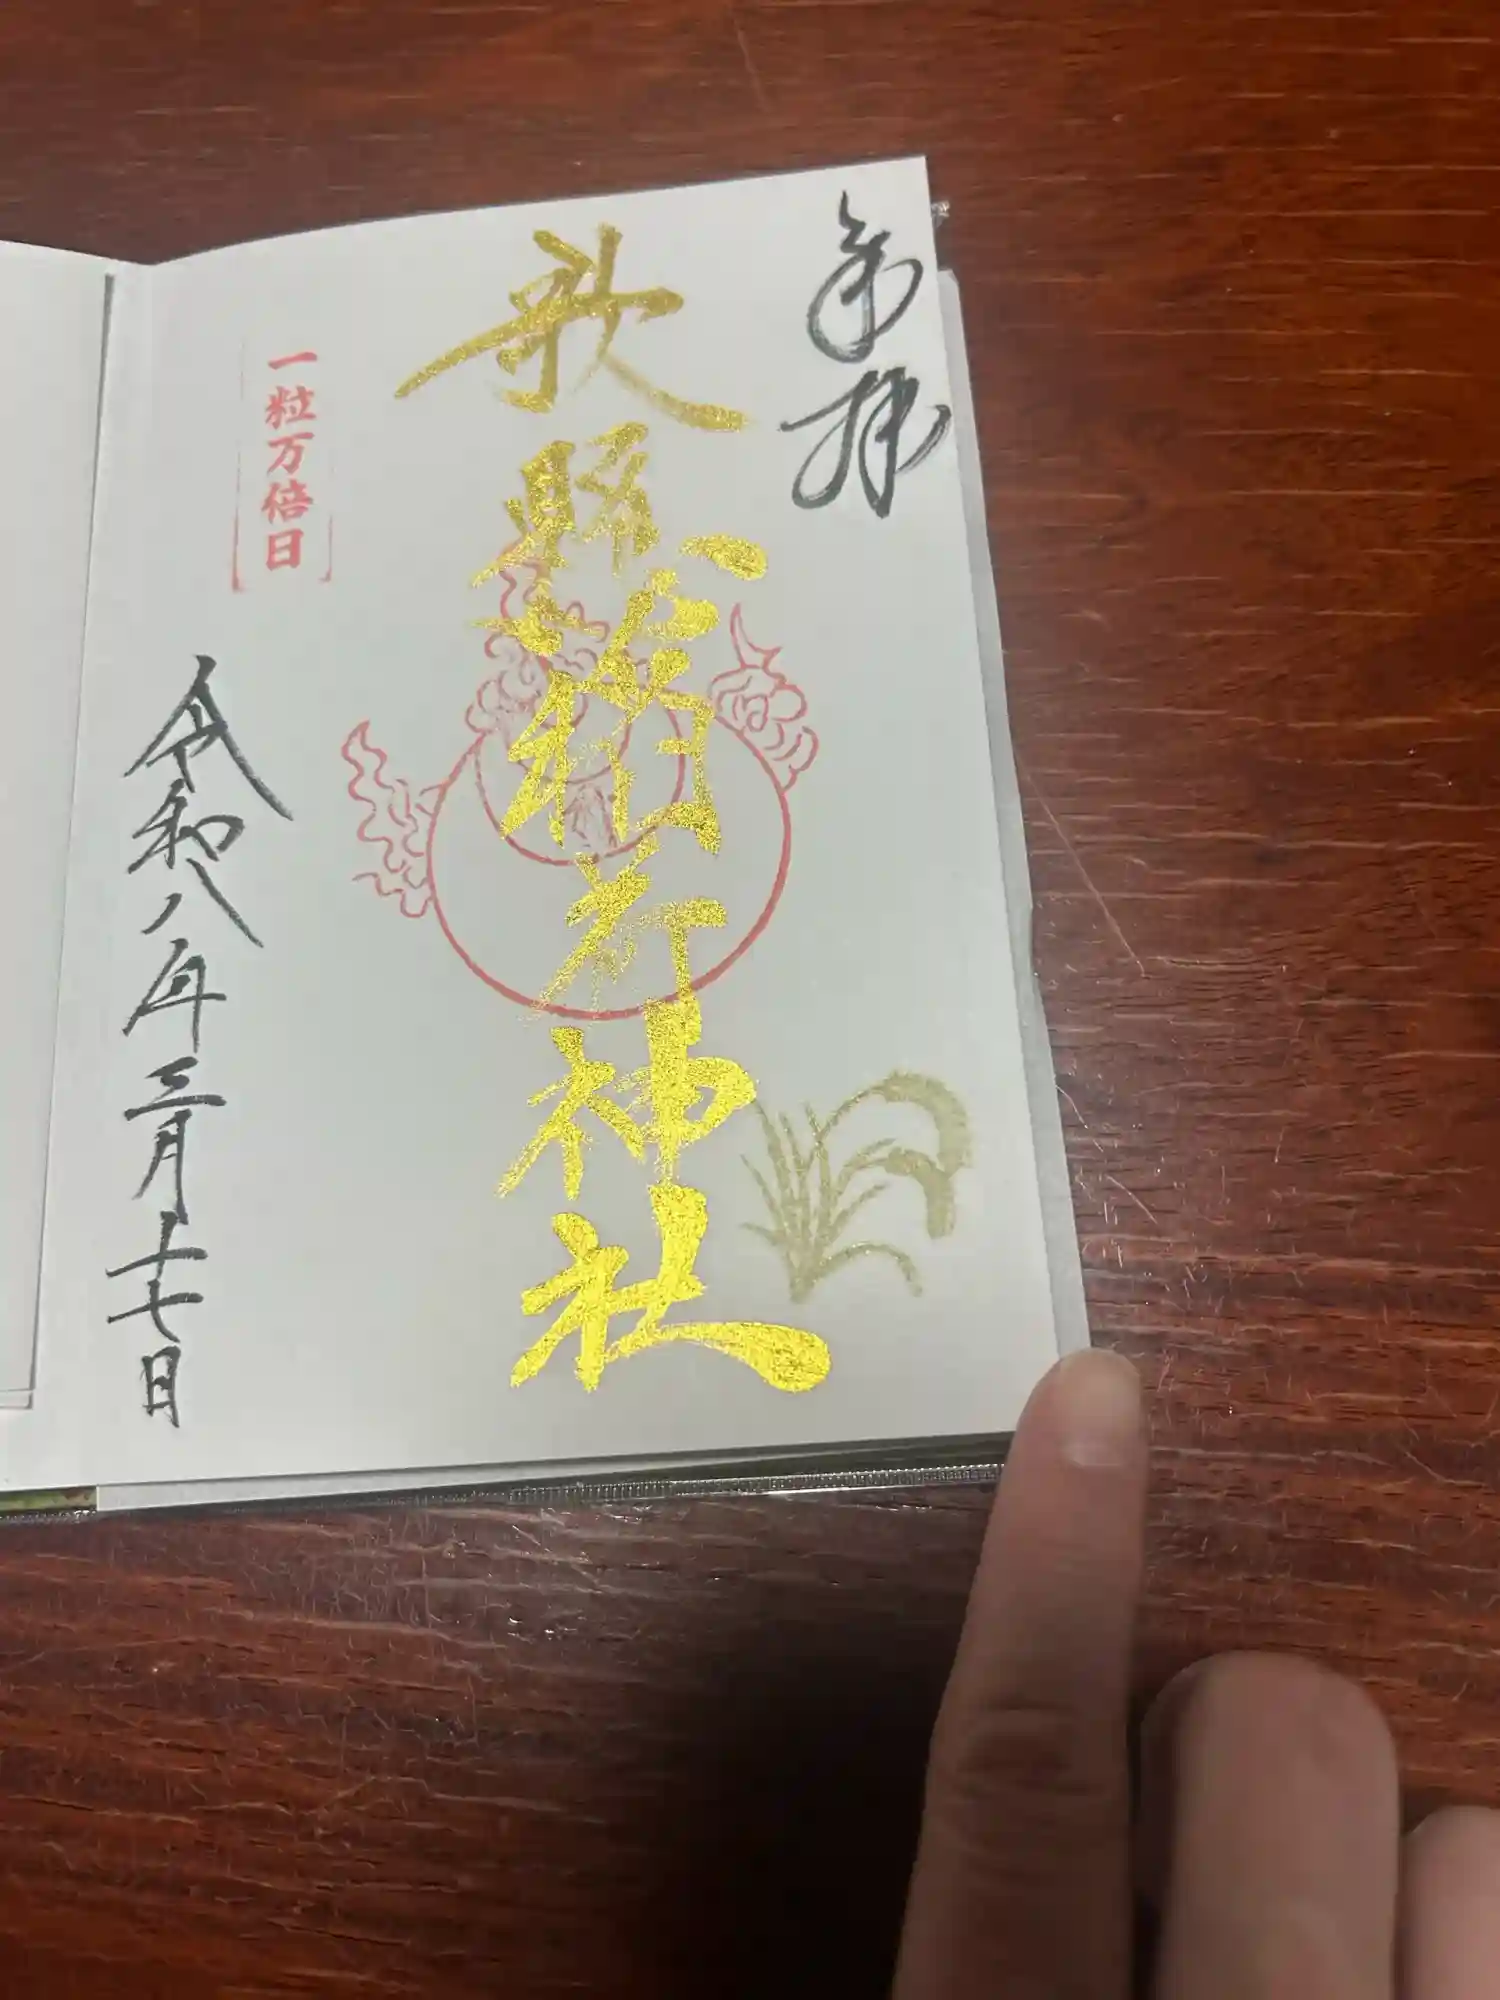 奉拝
歌懸稲荷神社
一粒万倍日
令和八年三月十七日